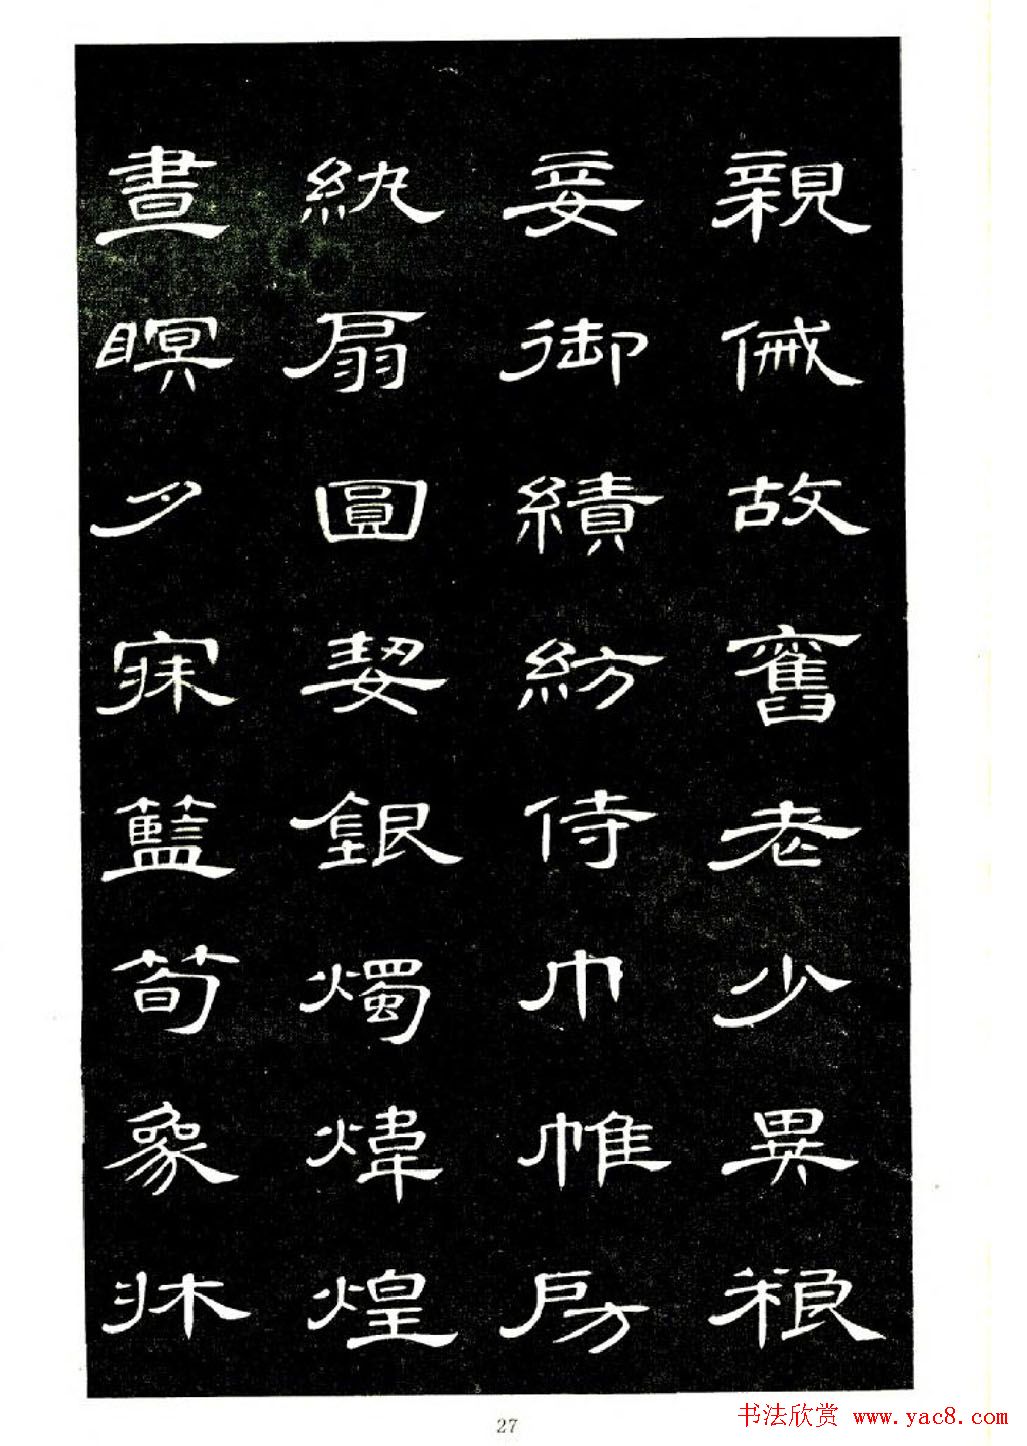 親戚故舊老少異粮
妾御績紡侍巾帷房
紈扇圓㛃銀燭煒煌
晝瞑夕寐籃筍象牀
27
书法欣赏 www.yac8.com